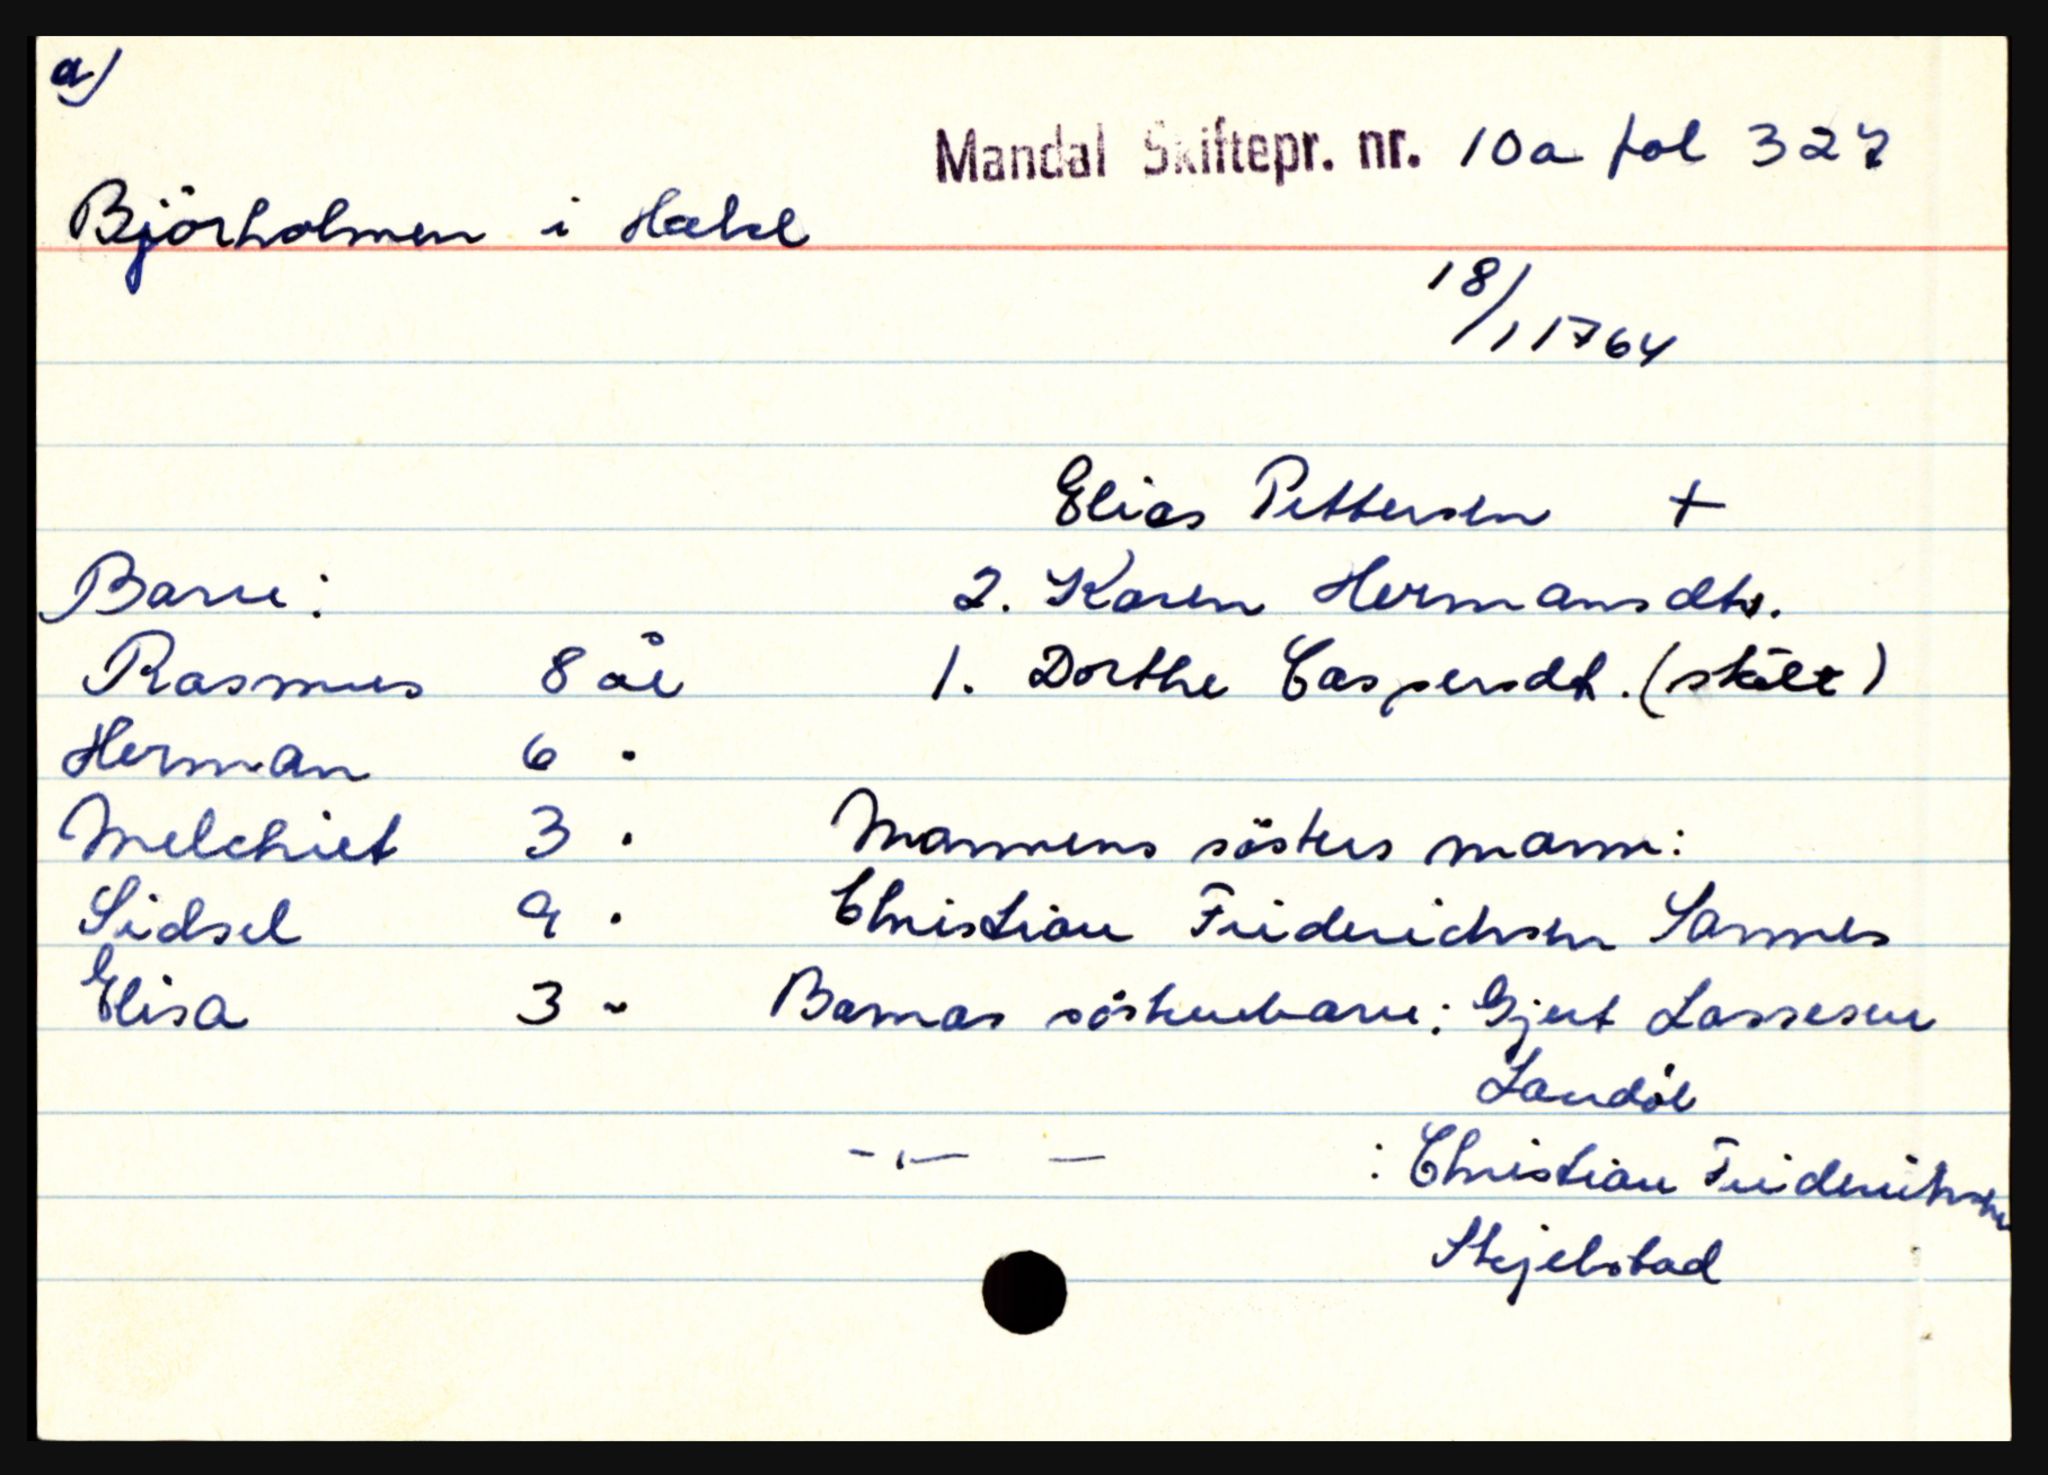 a)
Mandal Skiftepr. nr. 10a fol 327
Björholmen i
18/1 1764
Elias Pettersen +
Barn: 2. Karen Hermansdtr.
Rasmus 8 år 1. Dorthe Caspersdt. (skilt)
Herman 6 "
Melchiet 3 " Mannens sösters mann:
Sidsel 9 " Christian Friderichsen Sannes
Elisa 3 " Barnas söskenbarn: Gjert Lassesen
Landöl
-"- — : Christian Friderichsen
Skjebstad